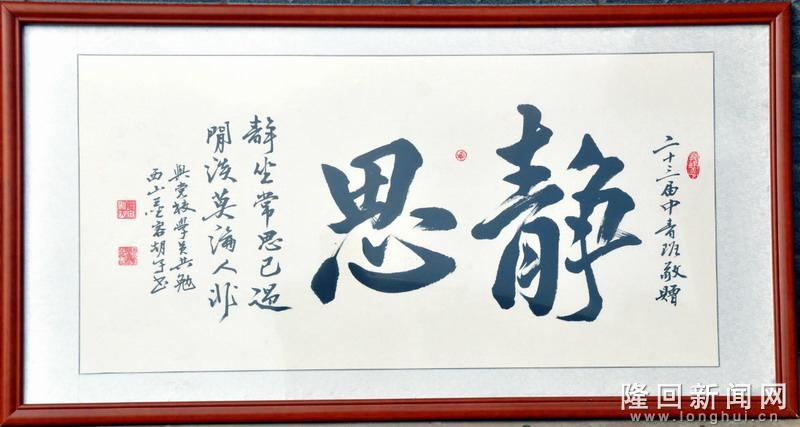 二十三届中青班敬赠
静思
静坐常思己過
閒谈莫論人非
與党校學员共勉
西山墨客胡子书
隆回新闻网
www.longhui.cn